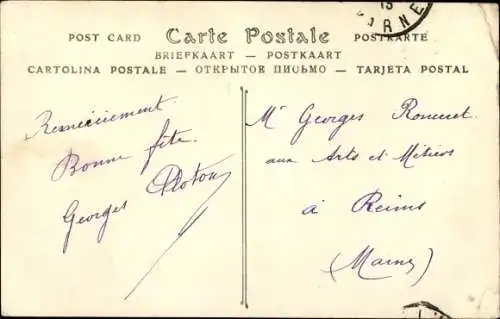 POST CARD Carte Postale POSTKARTE
BRIEFKAART — POSTKAART
CARTOLINA POSTALE — ОТКРЫТОЕ ПИСЬМО — TARJETA POSTAL
Remerciement.
Bonne fête.
Georges
Mr Georges
aux Arts et Métiers
à Reims
(Marne)
13
RNE